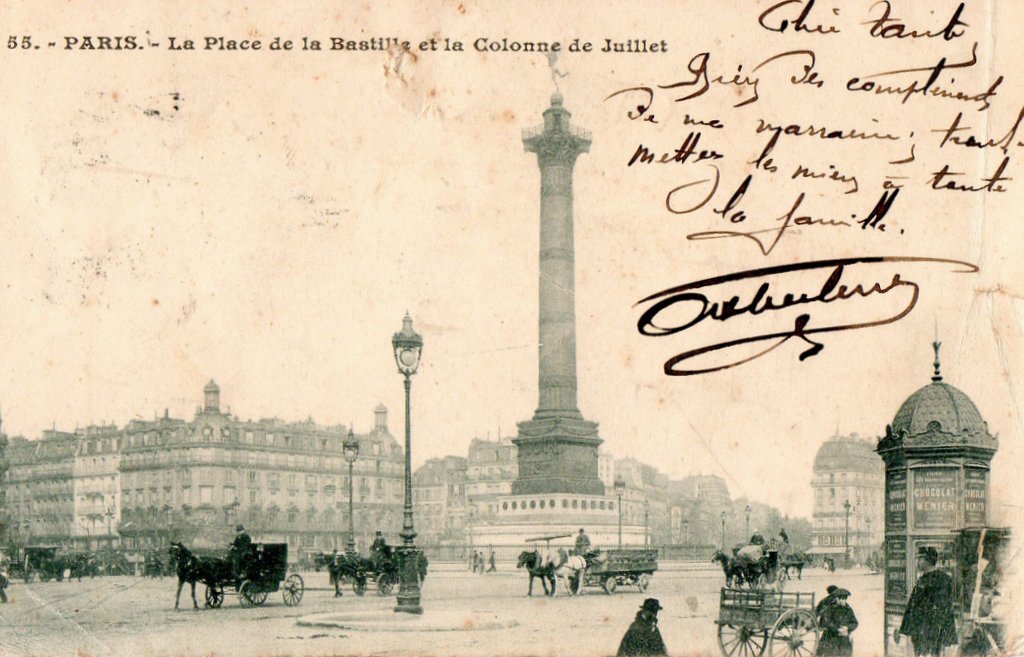 55. - PARIS. - La Place de la Bastille et la Colonne de Juillet
Bien des compliments
De ma marraine; trans
mettez les miens à toute
la famille.
CHOCOLAT
MENIER